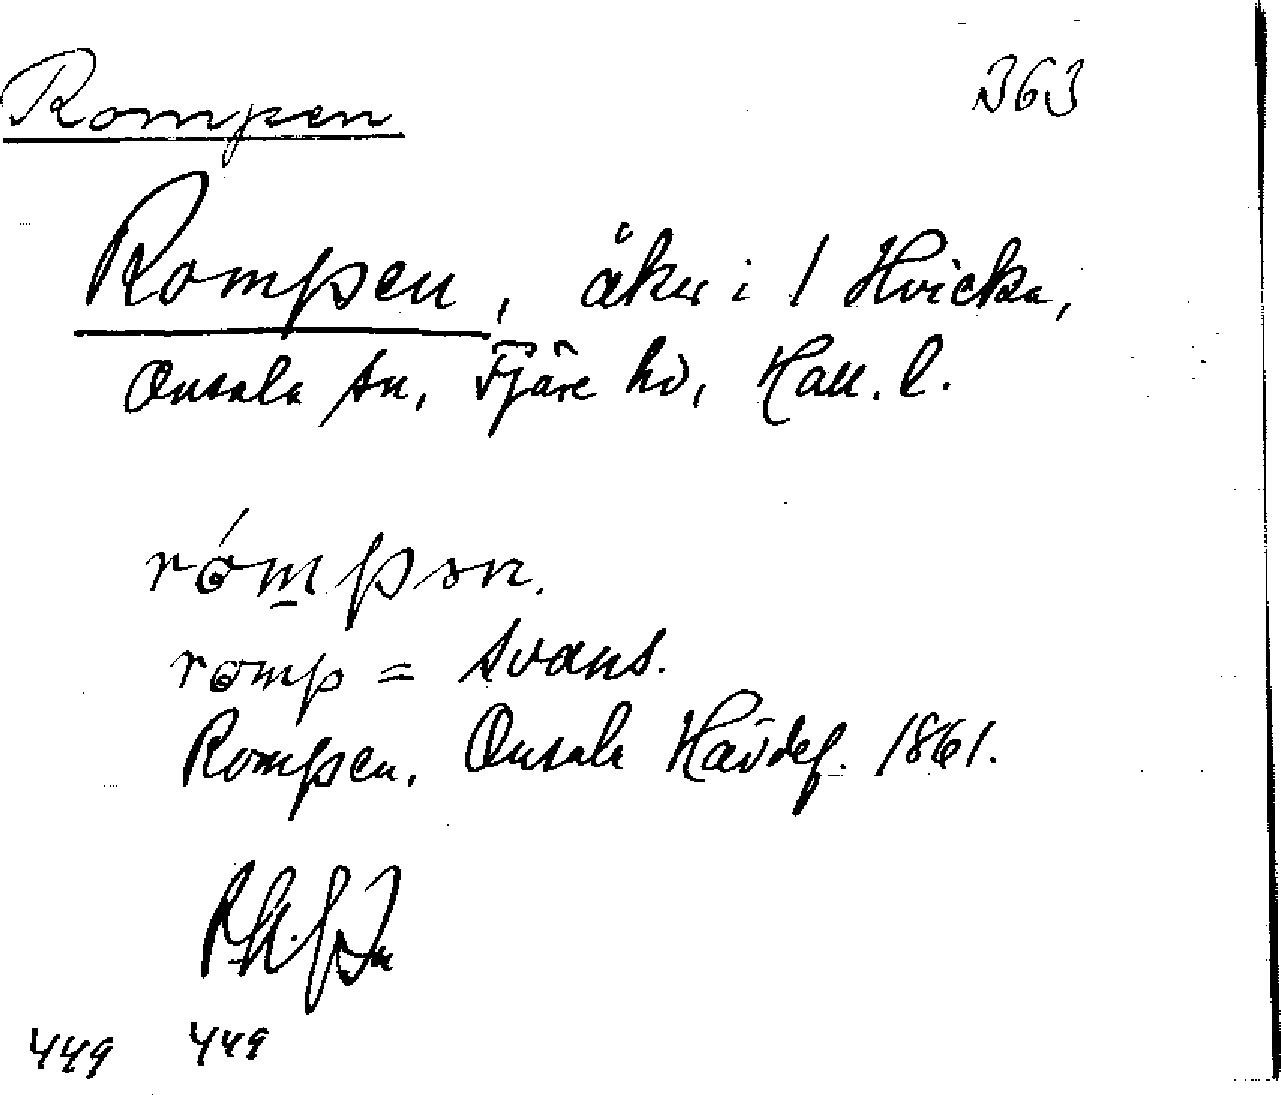 Rompen 363
Rompen, åker i 1 Hvicka,
Onsala sn, Fjäre hd, Hall. l.
rómpən.
romp = svans.
Rompen. Onsala Hävdef. 1861.
449 449